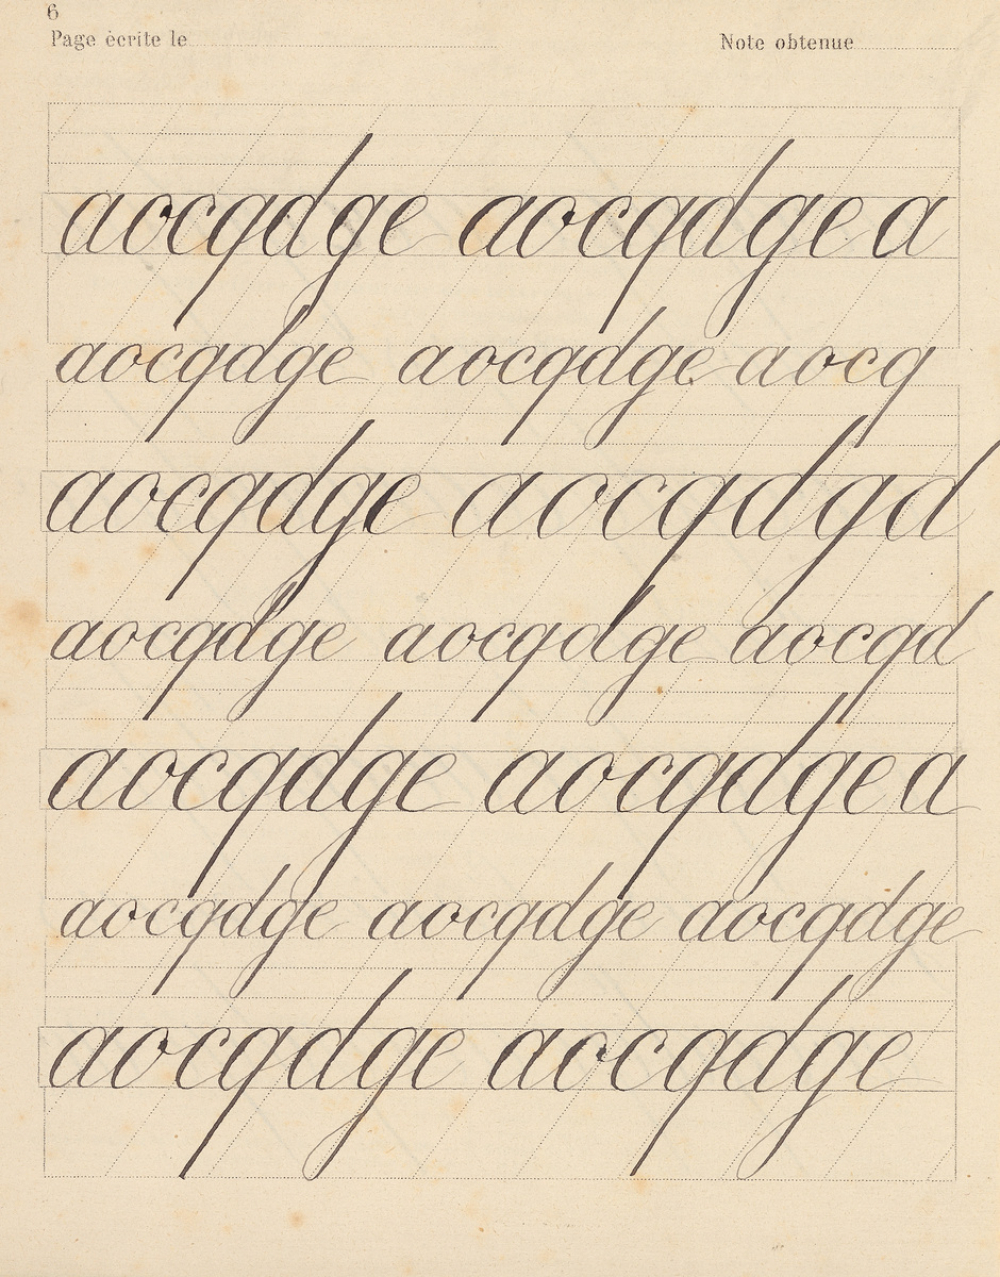 6
Page ècrite le
Note obtenue
aocqdge aocqdge a
aocqdge aocqdge aocq
aocqdge aocqdgd
aocqdge aocqdge aocqd
aocqdge aocqdge a
aocqdge aocqdge aocqdge
aocqdge aocqdge